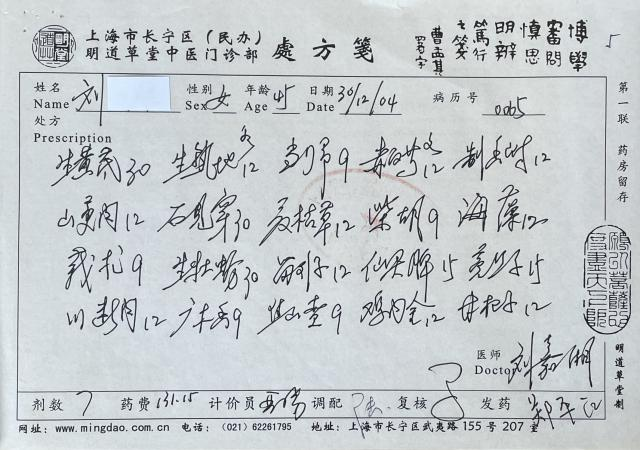 上海市长宁区(民办)
明道草堂中医门诊部
處方箋
博學
審問
慎思
明辨
篤行
姓名 Name 刘
性别 Sex 女
年龄 Age 45
日期 Date 30/12/04
病历号 0065
处方
Prescription
生黄芪30 生熟地各12 当归9 赤白芍各12 制香附12
山萸肉12 石见穿30 夏枯草12 柴胡9 海藻12
莪术9 生牡蛎30 12 仙灵脾15 菟丝子15
川断肉12 广木香9 生山查9 鸡内金12 12
医师
Doctor 刘嘉湘
剂数 7 药费 131.15 计价员 调配 复核 发药
网址：www.mingdao.com.cn 电话：(021) 62261795 地址：上海市长宁区武夷路 155 号 207 室
第一联 药房留存
明道草堂制